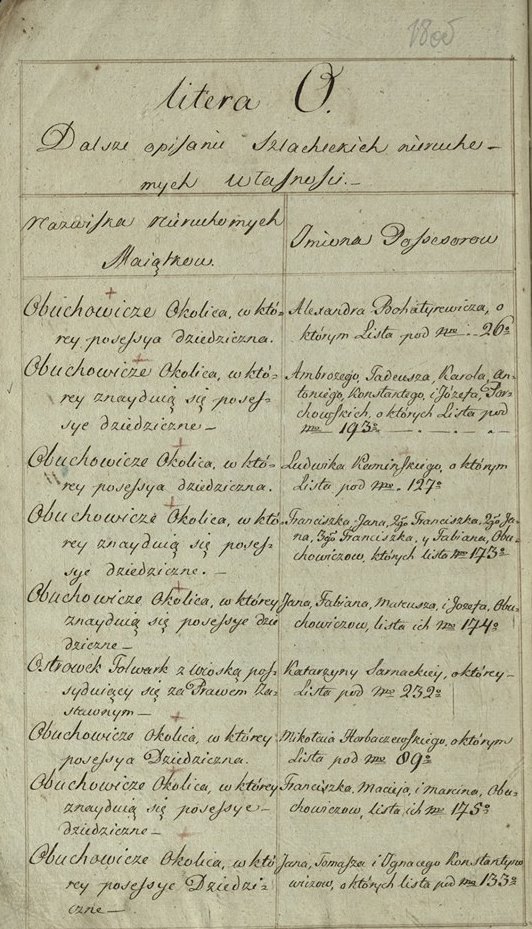 1805
litera O.
Dalsze opisanie Szlacheckich nierucho-
mych własności.—
Nazwiska nieruchomych
Maiątkow.
Imiona Possesorow
Obuchowicze Okolica, w któ-
rey posessya dziedziczna.
Alexandra Bohatyrewicza, o
którym Lista pod nro .. 26o
Obuchowicze Okolica, w któ-
rey znayduią się posses-
sye dziedziczne —
Ambrożego, Tadeusza, Karola, An-
toniego, Konstantego, i Józefa,
chowskich, o których Lista pod
nro 193o
Obuchowicze Okolica, w któ-
rey posessya dziedziczna.
Ludwika Kaminskiego, o którym
Lista pod nro. 127o
Obuchowicze Okolica, w któ
rey znayduią się posses-
sye dziedziczne. —
Franciszka, Jana, 2go Franciszka, 2go Ja-
na, 3go Franciszka, y Fabiana, Obu-
chowiczow, których lista nro 173o
Obuchowicze Okolica, w którey
znayduią się possessye dzie
dziczne —
Jana, Fabiana, Mateusza, i Jozefa, Obu-
chowiczow, lista ich nro 174o
Ostrowek Folwark z wioską pos-
syduiący się za Prawem Za-
stawnym —
Katarzyny Sarnackiey, o którey —
Lista pod nro 232o
Obuchowicze Okolica, w którey
posessya Dziedziczna.
Mikołaia Horbaczewskiego, o którym
Lista pod nro 89o
Obuchowicze Okolica, w którey
znayduią się posessye —
dziedziczne —
Franciszka, Macieja, i Marcina, Obu-
chowiczow, lista ich nro 175o
Obuchowicze Okolica, w któ
rey posessye Dziedzi-
czne —
Jana, Tomasza i Ignacego Konstantyno
wiczow, o których lista pod nro 133o